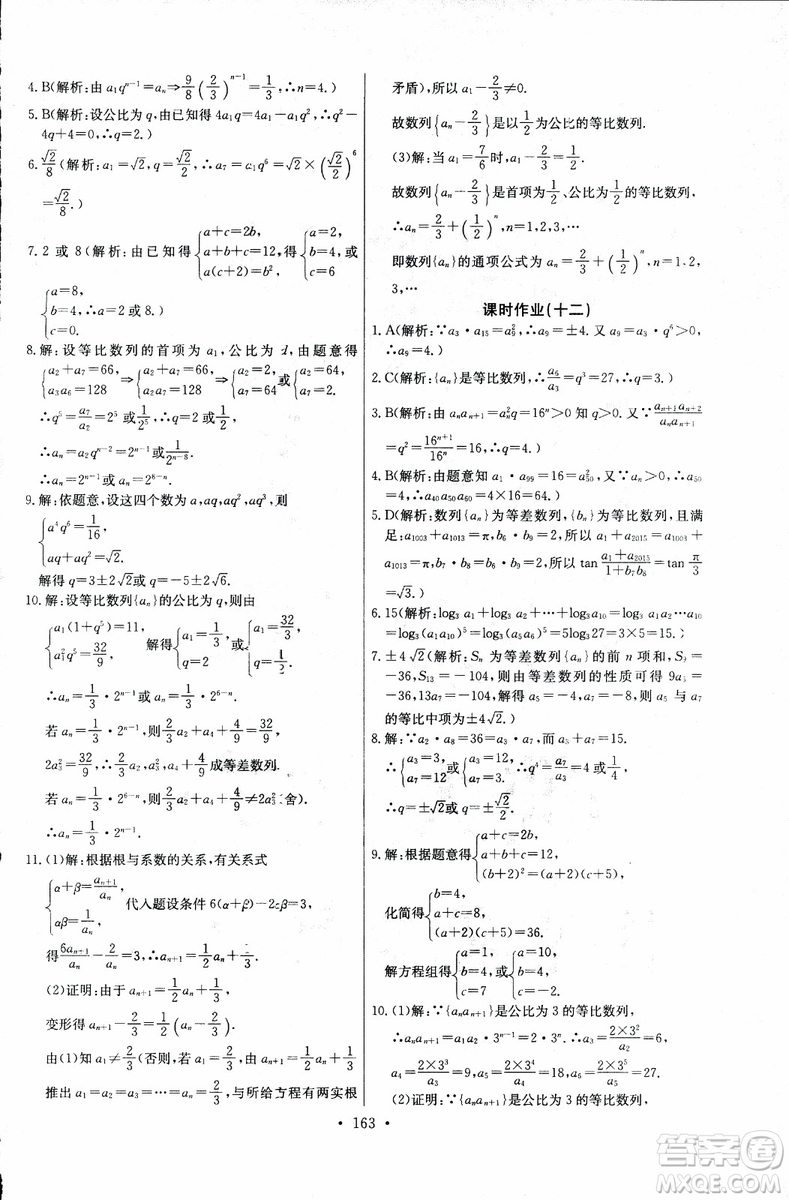 4. B(解析:由a₁qⁿ⁻¹=aₙ⇒9/8(2/3)ⁿ⁻¹=1/3,∴n=4.)
5. B(解析:设公比为q,由已知得4a₁q=4a₁-a₁q²,∴q²-
4q+4=0,∴q=2.)
6. √2/8(解析:a₁=√2,q=√2/2,∴a₇=a₁q⁶=√2×(√2/2)⁶=
√2/8.)
7. 2或8(解析:由已知得{a+c=2b, a+b+c=12, a(c+2)=b²,得{a=2, b=4, c=6或
{a=8, b=4,∴a=2或8.)
8. 解:设等比数列的首项为a₁,公比为q,由题意得
{a₂+a₇=66, a₃a₆=128⇒{a₂+a₇=66, a₂a₇=128⇒{a₂=2, a₇=64或{a₂=64, a₇=2.
∴q⁵=a₇/a₂=2⁵或1/2⁵,∴q=2或1/2,
∴aₙ=a₂qⁿ⁻²=2ⁿ⁻¹或1/2ⁿ⁻⁸.
∴aₙ=2ⁿ⁻¹或aₙ=2⁸⁻ⁿ.
9. 解:依题意,设这四个数为a,aq,aq²,aq³,则
{a⁴q⁶=1/16, aq+aq²=√2.
解得q=3±2√2或q=-5±2√6.
10. 解:设等比数列{aₙ}的公比为q,则由
{a₁(1+q⁵)=11, a₁²q⁵=32/9,解得{a₁=1/3, q=2或{a₁=32/3, q=1/2
∴aₙ=1/3·2ⁿ⁻¹或aₙ=1/3·2⁶⁻ⁿ.
若aₙ=1/3·2ⁿ⁻¹,则2/3a₂+a₄+4/9=32/9,
2a₃²=32/9,∴2/3a₂,a₃²,a₄+4/9成等差数列.
若aₙ=1/3·2⁶⁻ⁿ,则2/3a₂+a₄+4/9≠2a₃²(舍).
∴aₙ=1/3·2ⁿ⁻¹.
11. (1)解:根据根与系数的关系,有关系式
{α+β=aₙ₊₁/aₙ, αβ=1/aₙ, 代入题设条件6(α+β)-2αβ=3,
得6aₙ₊₁/aₙ-2/aₙ=3,∴aₙ₊₁=1/2aₙ+1/3.
(2)证明:由于aₙ₊₁=1/2aₙ+1/3,
变形得aₙ₊₁-2/3=1/2(aₙ-2/3),
由(1)知a₁≠2/3(否则,若a₁=2/3,由aₙ₊₁=1/2aₙ+1/3
推出a₁=a₂=a₃=…=aₙ=2/3,与所给方程有两实根
矛盾),所以a₁-2/3≠0.
故数列{aₙ-2/3}是以1/2为公比的等比数列.
(3)解:当a₁=7/6时,a₁-2/3=1/2,
故数列{aₙ-2/3}是首项为1/2,公比为1/2的等比数列,
∴aₙ=2/3+(1/2)ⁿ,n=1,2,3,…
即数列{aₙ}的通项公式为aₙ=2/3+(1/2)ⁿ,n=1,2,
3,…
课时作业(十二)
1. A(解析:∵a₃·a₁₅=a₉²,∴a₉=±4.又∵a₉=a₃·q⁶>0,
∴a₉=4.)
2. C(解析:{aₙ}是等比数列,a₆/a₃=q³=27,∴q=3.)
3. B(解析:由aₙaₙ₊₁=aₙ²q=16ⁿ>0知q>0.又∵aₙ₊₁aₙ₊₂/aₙaₙ₊₁
=q²=16ⁿ⁺¹/16ⁿ=16,∴q=4.)
4. B(解析:由题意得a₁·a₉₉=16=a₅₀²,又∵aₙ>0,∴a₅₀
=4,∴a₄₀a₅₀a₆₀=4×16=64.)
5. D(解析:数列{aₙ}为等差数列,{bₙ}为等比数列,且满
足:a₁₀₀₃+a₁₀₁₃=π,b₆·b₉=2,所以a₁+a₂₀₁₅=a₁₀₀₃+
a₁₀₁₃=π,b₇·b₈=b₆·b₉=2,所以tan a₁+a₂₀₁₅/1+b₇b₈=tan π/3
=√3.)
6. 15(解析:log₃a₁+log₃a₂+…+log₃a₁₀=log₃a₁a₂…a₁₀
=log₃(a₁a₁₀)⁵=5log₃27=3×5=15.)
7. ±4√2(解析:Sₙ为等差数列{aₙ}的前n项和,S₉=
-36,S₁₃=-104,则由等差数列的性质可得9a₅=
-36,13a₇=-104,解得a₅=-4,a₇=-8,所以a₅与a₇
的等比中项为±4√2.)
8. 解:∵a₂·a₈=36=a₃·a₇,而a₃+a₇=15.
∴{a₃=3, a₇=12或{a₃=12, a₇=3.∴q⁴=a₇/a₃=4或1/4,
∴q=±√2或q=±√2/2.
9. 解:根据题意得{a+c=2b, a+b+c=12, (b+2)²=(a+2)(c+5),
化简得{b=4, a+c=8, (a+2)(c+5)=36,
解方程组得{a=1, b=4, c=7或{a=10, b=4, c=-2.
10. (1)解:∵{aₙaₙ₊₁}是公比为3的等比数列,
∴aₙaₙ₊₁=a₁a₂·3ⁿ⁻¹=2·3ⁿ.∴a₃=2×3²/a₂=6,
a₄=2×3³/a₃=9,a₅=2×3⁴/a₄=18,a₆=2×3⁵/a₅=27.
(2)证明:∵{aₙaₙ₊₁}是公比为3的等比数列,
· 163 ·
答案圈
MXQE.COM